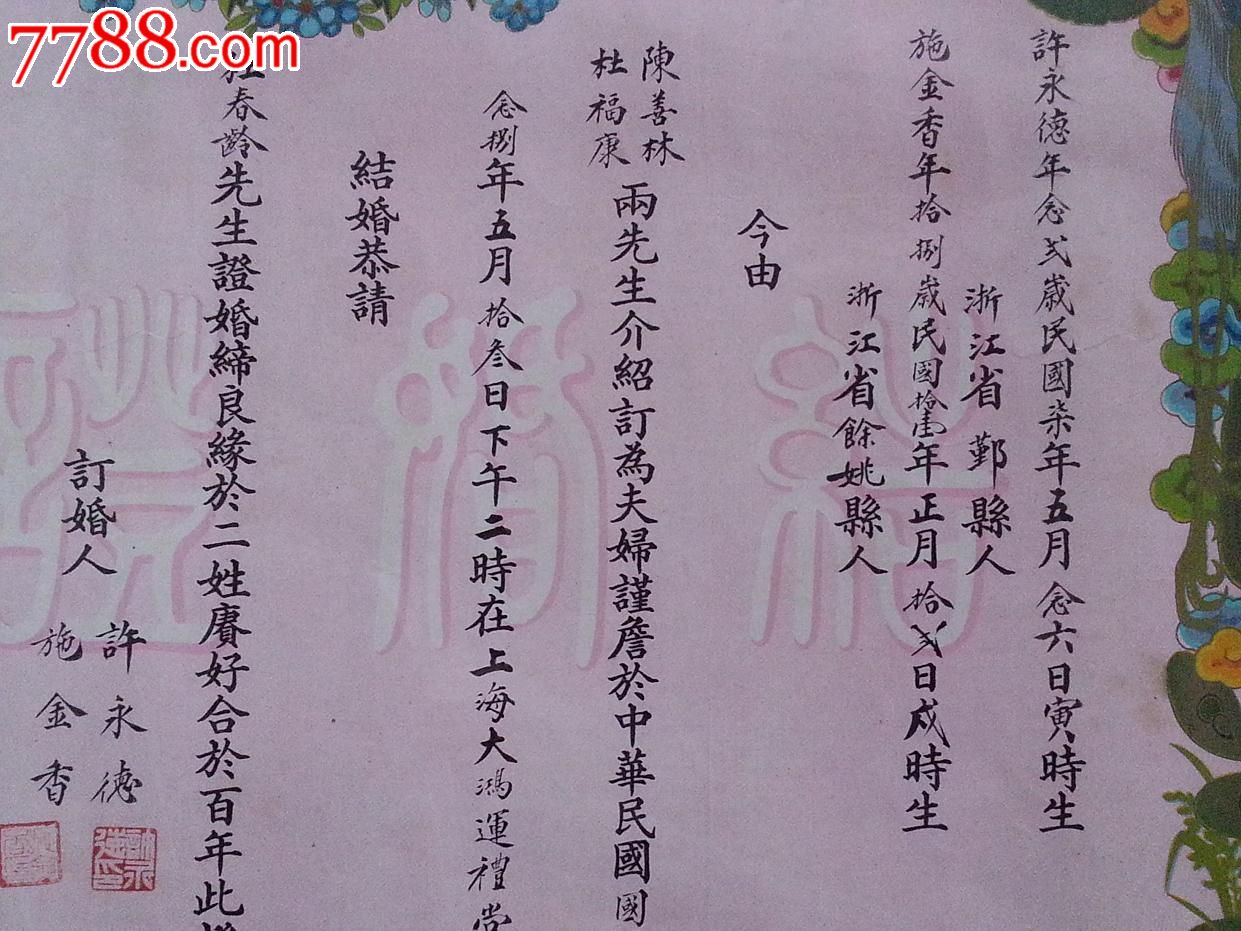 許永德年念弍歲民國柒年五月念六日寅時生
浙江省鄞縣人
施金香年拾捌歲民國拾壹年正月拾弍日戍時生
浙江省餘姚縣人
今由
陳善林
杜福康
兩先生介紹訂為夫婦謹詹於中華民國國
念捌年五月拾叁日下午二時在上海大鴻運禮堂
結婚恭請
春齡先生證婚締良緣於二姓賡好合於百年此
訂婚人
許永德
施金香
7788.com